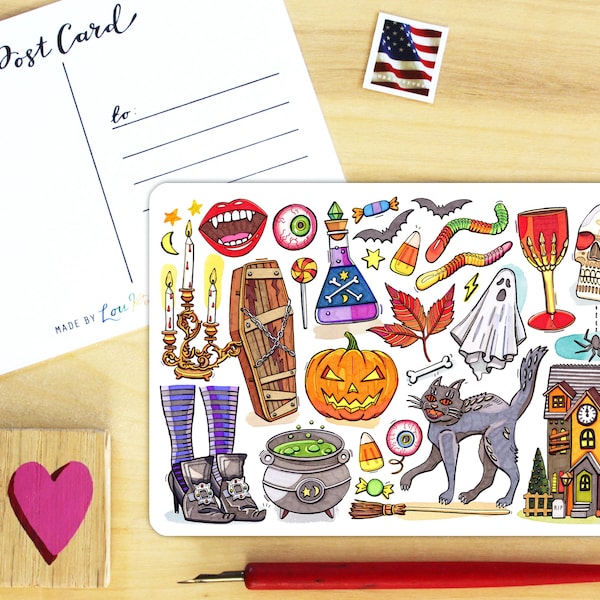 Post Card
to:
MADE BY Lou
RIP